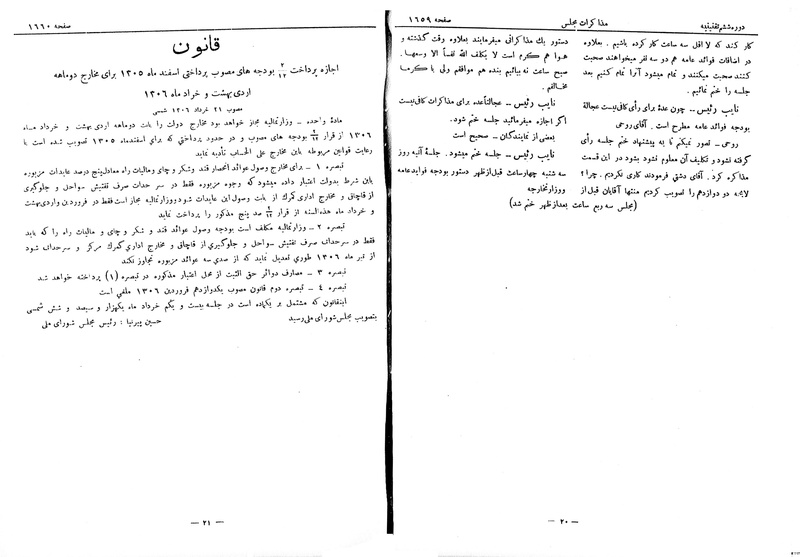 دوره ششم تقنینیه
مذاکرات مجلس
صفحه ۱۶۵۹
کار کنند که لااقل سه ساعت کار کرده باشیم . بعلاوه
در اضافات فوائد عامه هم دو سه نفر میخواهند صحبت
کنند صحبت میکنند و تمام میشود آرا تمام کنیم بعد
جلسه را ختم نمائیم
نایب رئیس ــ چون عدهٔ برای رأی کافی نیست عجالة
بودجه فوائد عامه مطرح است . آقای روحی
روحی ــ تصور نمیکنم تا به پیشنهاد ختم جلسه رأی
گرفته نشود و تکلیف آن معلوم نشود بشود در این قسمت
مذاکره کرد . آقای دشتی فرمودند کاری نکردیم . چرا ؟
لایحه دو دوازدهم را تصویب کردیم منتها آقایان قبل از
دستور یك مذاکراتی میفرمایند بعلاوه وقت گذشته و
هوا هم گرم است لا یکلف الله نفساً الا وسعها .
صبح ساعت نه بیائیم بنده هم موافقم ولی با گرما
مخالفم .
نایب رئیس ــ عجالتاً عده برای مذاکرات کافی نیست
اگر اجازه میفرمائید جلسه ختم شود.
بعضی از نمایندگان ــ صحیح است
نایب رئیس ــ جلسه ختم میشود . جلسهٔ آتیه روز
سه شنبه چهار ساعت قبل از ظهر دستور بودجه فواید عامه
و وزارتخارجه
(مجلس سه ربع ساعت بعد از ظهر ختم شد)
ــ ۲۰ ــ
صفحه ۱۶۶۰
قانون
اجازه پرداخت ۲/۱۲ بودجه های مصوب پرداختی اسفند ماه ۱۳۰۵ برای مخارج دوماهه
اردی بهشت و خرداد ماه ۱۳۰۶
مصوب ۲۱ خرداد ۱۳۰۶ شمسی
مادهٔ واحده ــ وزارتمالیه مجاز خواهد بود مخارج دولت را بابت دوماهه اردی بهشت و خرداد ماه
۱۳۰۶ از قرار بودجه های مصوب و در حدود پرداختی که برای اسفندماه ۱۳۰۵ تصویب شده است با
رعایت قوانین مربوطه باین مخارج علی الحساب تأدیه نماید
تبصره ۱ ــ برای مخارج وصول عوائد انحصار قند و شکر و چای و مالیات راه معادل پنج درصد عایدات مزبوره
باین شرط بدولت اعتبار داده میشود که وجوه مزبوره فقط در سر حدات صرف تفتیش سواحل و جلوگیری
از قاچاق و مخارج اداری گمرك از بابت وصول این عایدات شود و وزارتمالیه مجاز است فقط در فروردین و اردی بهشت
و خرداد ماه هذه السنه از قرار صد پنج مذکور را پرداخت نماید
تبصره ۲ ــ وزارتمالیه مکلف است بودجه وصول عوائد قند و شکر و چای و مالیات راه را که باید
فقط در سرحدات صرف تفتیش سواحل و جلوگیری از قاچاق و مخارج اداری گمرك مرکز و سرحداث شود
از تیر ماه ۱۳۰۶ طوری تعدیل نماید که از صدی سه عوائد مزبوره تجاوز نکند
تبصره ۳ ــ مصارف دوائر حق الثبت از محل اعتبار مذکوره در تبصره (۱) پرداخته خواهد شد
تبصره ٤ ــ تبصره دوم قانون مصوب یکدوازدهم فروردین ۱۳۰۶ ملغی است
اینقانون که مشتمل بر یکماده است در جلسه بیست و یکم خرداد ماه یکهزار و سیصد و شش شمسی
بتصویب مجلس شورای ملی رسید
حسین پیرنیا : رئیس مجلس شورای ملی
ــ ۲۱ ــ